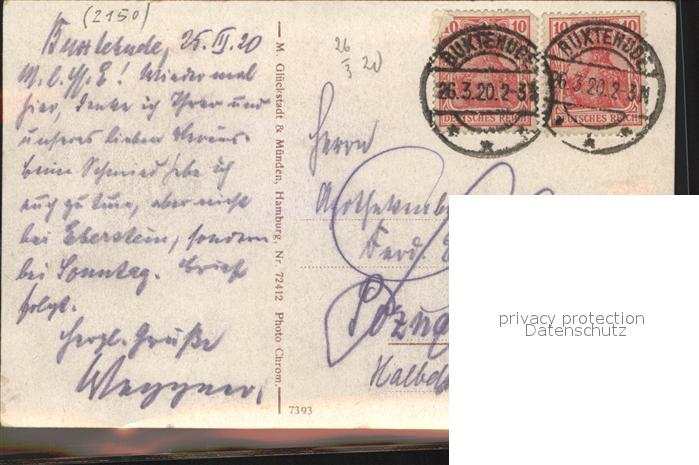 (2150)
Buxtehude, 25.III.20
M. l. H. E! Wieder mal
hier, denke ich Ihrer und
unseres lieben Vereins.
Beim Schmied habe ich
auch zu tun, aber nicht
bei Eberstein, sondern
bei Sonntag. Brief
folgt.
Herzl. Grüße
M. Glückstadt & Münden, Hamburg, Nr. 72412 Photo Chrom.
7393
26
3 20
10 10
10 10
BUXTEHUDE
26.3.20.2-3N
BUXTEHUDE
26.3.20.2-3N
DEUTSCHES REICH
DEUTSCHES REICH
Herrn
Ferd.
privacy protection
Datenschutz